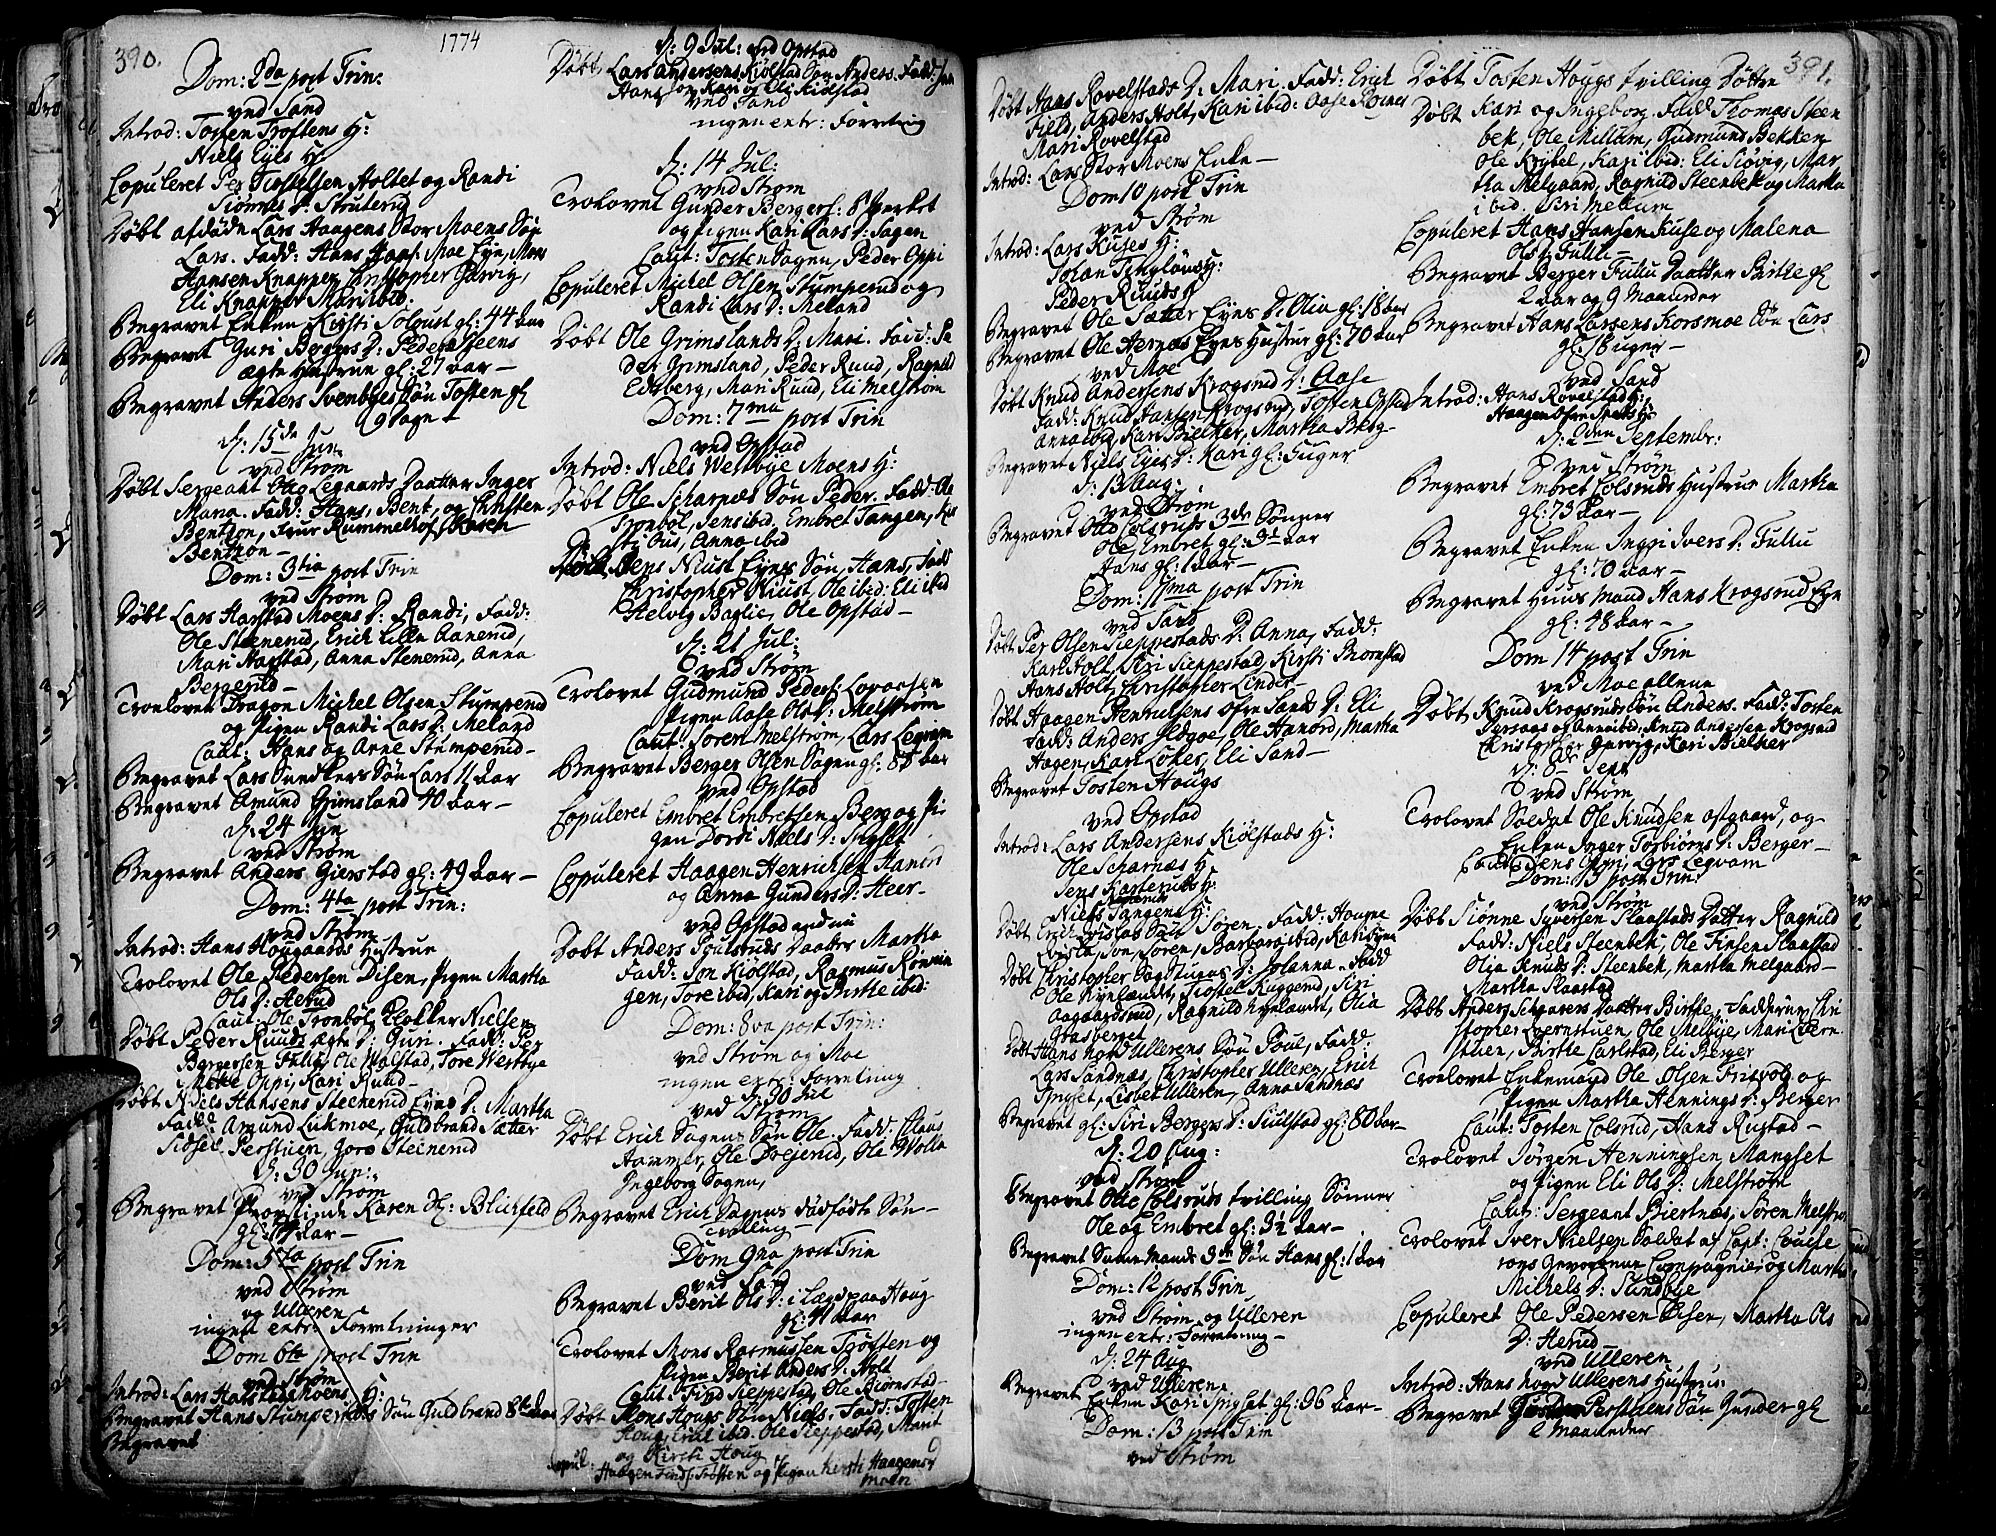 390.
1774
Dom: 2da post Trin:
ved Sand
Introd: Tosten Troftens H:
Niels Eyes H:
Copuleret Per Tiostelsen Holtet og Randi
Siønnes D: Struterud
Døbt afdøde Lars Haagens Stor Moens Søn
Lars. Fadd: Hans Haaf: Moe Eyn, Mons
Hansen Knapper, Christopher Gurvig,
Eli Knapper Mari ibid:
Begravet Enken Kirsti Soloust gl: 44 Aar
Begravet Guri Bergers D: Peder
ægte Hustrue gl: 27 aar —
Begravet Anders Svenbyes Søn Tosten gl
9 Dage
d: 15de Jun.
ved Strøm
Døbt Sergeant Otto Legaards Daatter Inger
Maria. Fadd: Hans, Bent, og Christen
Bentzon, Frur Rummelhof,
Bentzon —
Dom: 3tia post Trin
ved Strøm
Døbt Lars Harstad Moens D: Randi, Fadd:
Ole Stenerud, Erich Lille Aanerud,
Mari Harstad, Anna Stenerud, Anna
Bergerud —
Troelovet Dragon Michel Olsen Stumperud
og Pigen Randi Lars D: Meland
Caut: Hans og Arne Stumperud —
Begravet Lars Sundkers Søn Lars 11 Aar
Begravet Amund Grimsland 40 Aar —
d: 24 Jun
ved Strøm
Begravet Anders Gierstad gl: 49 Aar —
Dom: 4ta post Trin:
ved Strøm
Introd: Hans Hougaards Hustrue
Trolovet Ole Pedersen Disen, Pigen Martha
Ols D: Herud
Caut: Ole Tronbøl, Klokker Nielsen
Døbt Peder Ruuds ægte D: Guri. Fadd: Per
Borgersen Ole Walstad, Tore Westbye
Oppi, Kari Ruud —
Døbt Niels Hansens Stenerud Eyes D: Martha
Fadd: Amund Lukmoe, Guldbrand Sætter
Sidsel Perstuen, Goro Stenerud
d: 30 Jun:
ved Strøm
Begravet Provstinde Karen Sl: Blichfeld
gl: Aar —
Dom: 5ta post Trin
ved Strøm
og Ulleren
ingen extr: Forretninger
Dom 6ta post Trin
ved Strøm
Introd: Lars Harstad Moens H:
Begravet Hans Stumperuds Søn Guldbrand 8 Aar
Begravet
d: 9 Jul: ved Opstad
Døbt Lars Andersens Kiølstad Søn Anders. Fadd: Jon
Hans Kari og Eli Kiølstad
ved Sand
ingen extr: Forretning
d: 14 Jul:
ved Strøm
Trolovet Gunder Bergers: Værket
og Pigen Kari Lars D: Sagen
Caut: Tosten Sagen, Peder Oppi
Copuleret Michel Olsen Stumperud og
Randi Lars D: Meland
Døbt Ole Grimslands D: Mari. Fadd: Pe
der Grimsland, Peder Ruud, Ragnild
Edsberg, Mari Ruud, Eli Melstrøm
Dom: 7ma post Trin
ved Opstad
Introd: Niels Westbye Moens H:
Døbt Ole Scharnæs Søn Peder. Fadd: Ole
Tronbøl, Jens ibid. Embret Tangen,
Anna ibid
Døbt Jens Niust Eyes Søn, Hans, Fadd
Christopher Niust, Ole ibid: Eli ibid
Helvig Baglie, Ole Opstad —
d: 21 Jul:
ved Strøm
Trolovet Gudmund Peders: Lovaasen
Pigen Aase Ols D: Melstrøm
Caut: Søren Melstrøm, Lars Legvam
Begravet Berger Olsen Sagen gl: 85 Aar
ved Opstad
Copuleret Embret Embretsen Berg og Pi
gen Dordi Niels D: Spigset
Copuleret Haagen Henrichsen Hanord
og Anna Gunders D: Heer —
ved Opstad endnu
Døbt Anders Daatter Martha
Fadd: Jon Kiølstad, Rasmus Rønnin
gen, Tore ibid, Kari og Birtte ibid:
Dom: 8va post Trin:
ved Strøm og Moe
ingen extr: Forretning
d: 30 Jul
ved Strøm
Døbt Erich Sagens Søn Ole. Fadd: Claus
Hammer, Ole Drejerud, Ole Wolla
Ingeborg Sagen,
Begravet Erich Sagens dødfødte Søn —
Tvilling —
Dom 9na post Trin
ved Sand
Begravet Berit Ols D: i Lægd paa Houg
gl: 41 Aar
Trolovet Mons Rasmussen Trøften og
Pigen Berit Anders D: Holt
Caut: Find Sieppestad, Ole Biørnstad
Døbt Mons Hougs Søn Niels. Fadd: Tosten
Houg, Erik ibid: Ole Sieppestad, Marit
og Kirsti Houg
Copul: Haagen Finds: Trøften og Pigen Kersti Haagens D
Moen
391.
Døbt Hans Rovelstads D: Mari. Fadd: Erich
Field, Anders Holt, Kari ibid: Aase
Mari Rovelstad
Introd: Lars Stor Moens Enke —
Dom 10 post Trin
ved Strøm
Introd: Lars Kuses H:
Johan Tingløns H:
Peder Ruuds H
Begravet Ole Sætter Eyes D: Olia gl: 18 Aar
Begravet Ole Hernæs Eyes Hustrue gl: 70 Aar
ved Moe
Døbt Knud Andersens Krogsrud D: Aase
Fadd: Knud Hansen Krogsrud, Tosten Opstad
Anna ibid, Kari Bielker, Martha Berg —
Begravet Niels Eyes D: Kari gl: 5 uger
d: 13 Aug:
ved Strøm
Begravet Otto Colsruds 3de Sønner
Ole, Embret gl: 3½ Aar
Hans gl: 1 Aar —
Dom: 11ma post Trin
ved Sand
Døbt Per Olsen Sieppestads D: Anna, Fadd:
Kari Holt, Siri Sieppestad, Kirsti Biornstad
Hans Holt, Christopher Linder —
Døbt Haagen Henrichsens Øfre Sands D: Eli
Fadd: Anders Ole Hanord, Martha
Hagen, Kari Lokes, Eli Sand —
Begravet Tosten Hougs
ved Opstad
Introd: Lars Andersens Kiølstads H:
Ole Scharnæs H
Jens Kasteruds H:
Niels Tangens H:
Døbt Erich Søn Søren, Fadd: Houge
Jon, Søren, Barbara ibid,
Døbt Christopher Sagstuens D: Johanna. Fadd
Ole Hvelændt, Tiostel Ruggerud, Siri
Aagaardsrud, Ragnild Hvelændt, Olia
Grasberget
Døbt Hans nord Ullerens Søn Poul, Fadd:
Lars Sandnæs, Christopher Ulleren, Erich
Spigset, Lisbet Ulleren, Anna Sandnæs
Begravet gl: Siri Bergers D: Siulstad gl: 80 Aar —
d: 20 Aug:
ved Strøm
Begravet Otto Colsruds tvilling Sønner
Ole og Embret gl: 3½ Aar —
Begravet Samme Mands 3de Søn Hans gl: 1 Aar
Dom: 12 post Trin
ved Strøm og Ulleren
ingen extr: Forretning —
d: 24 Aug
ved Ulleren
Begravet Enken Kari Spigset gl: 96 Aar —
Dom: 13 post Trin
ved Strøm
Døbt Tosten Hougs tvilling Døttre
Døbt Kari og Ingeborg. Fadd Thomas Steen
bek, Ole Mellum, Gudmund Bekken
Ole Krybel, Kari ibid: Eli Siøvig, Mar
tha Melgaard, Ragnild Steenbek og Martha
ibid. Siri Mellum
Copuleret Hans Hansen Kuse og Malena
Ols D: Fullu
Begravet Berger Fullu Daatter Birthe gl
2 Aar og 9 Maaneder
Begravet Hans Larsens Korsmoe Søn Lars
gl: 18 uger —
ved Sand
Introd: Hans Rovelstad H:
Haagen Ofre Sands H:
d: 2den Septembr:
ved Strøm
Begravet Embret Colsruds Hustrue Martha
gl: 73 Aar —
Begravet Enken Ingri Ivers D: Fullu
gl: 70 Aar —
Begravet Huus Mand Hans Krogsrud Eye
gl: 48 Aar —
Dom 14 post Trin
ved Moe allene
Døbt Knud Krogsruds Søn Anders. Fadd: Tosten
og Anna ibid, Knud Andersen Krogsrud
Christopher Gurvig, Kari Bielker
d: 8de Sept
ved Strøm
Trolovet Soldat Ole Knudsen Ostgaard, og
Enken Inger Torbiørns D: Berger —
Caut: Jens Lars Legvam
Dom: 15 post Trin:
ved Strøm
Døbt Siønne Syversen Slaastads Datter Ragnild
Fadd: Niels Steenbek, Ole Finsen Slaastad
Olia Knuds D: Steenbek, Martha Melgaard —
Martha Slaastad
Døbt Anders Daatter Birthe. Faddere: Chri
stopher Løernstuen, Ole Melbye, Mari Løern
stuen, Birthe Carlstad, Eli Berger
Troelovet Enkemand Ole Olsen Frisvold og
Pigen Martha Hennings D: Berger
Caut: Tosten Colsrud, Hans Rustad —
Trolovet Jørgen Henningsen Mangset
og Pigen Eli Ols D: Melstrøm
Caut: Sergeant Biertnæs, Søren Melstrøm
Trolovet Iver Nielsen Soldat af Capt:
rons Gevorbene Compagnie og Martha
Michels D: Sundbye
Copuleret Ole Pedersen Disen, Martha Ols
D: Herud —
ved Ulleren
Introd: Hans nord Ullerens Hustrue
Begravet Perstuens Søn Gunder gl
2 Maaneder